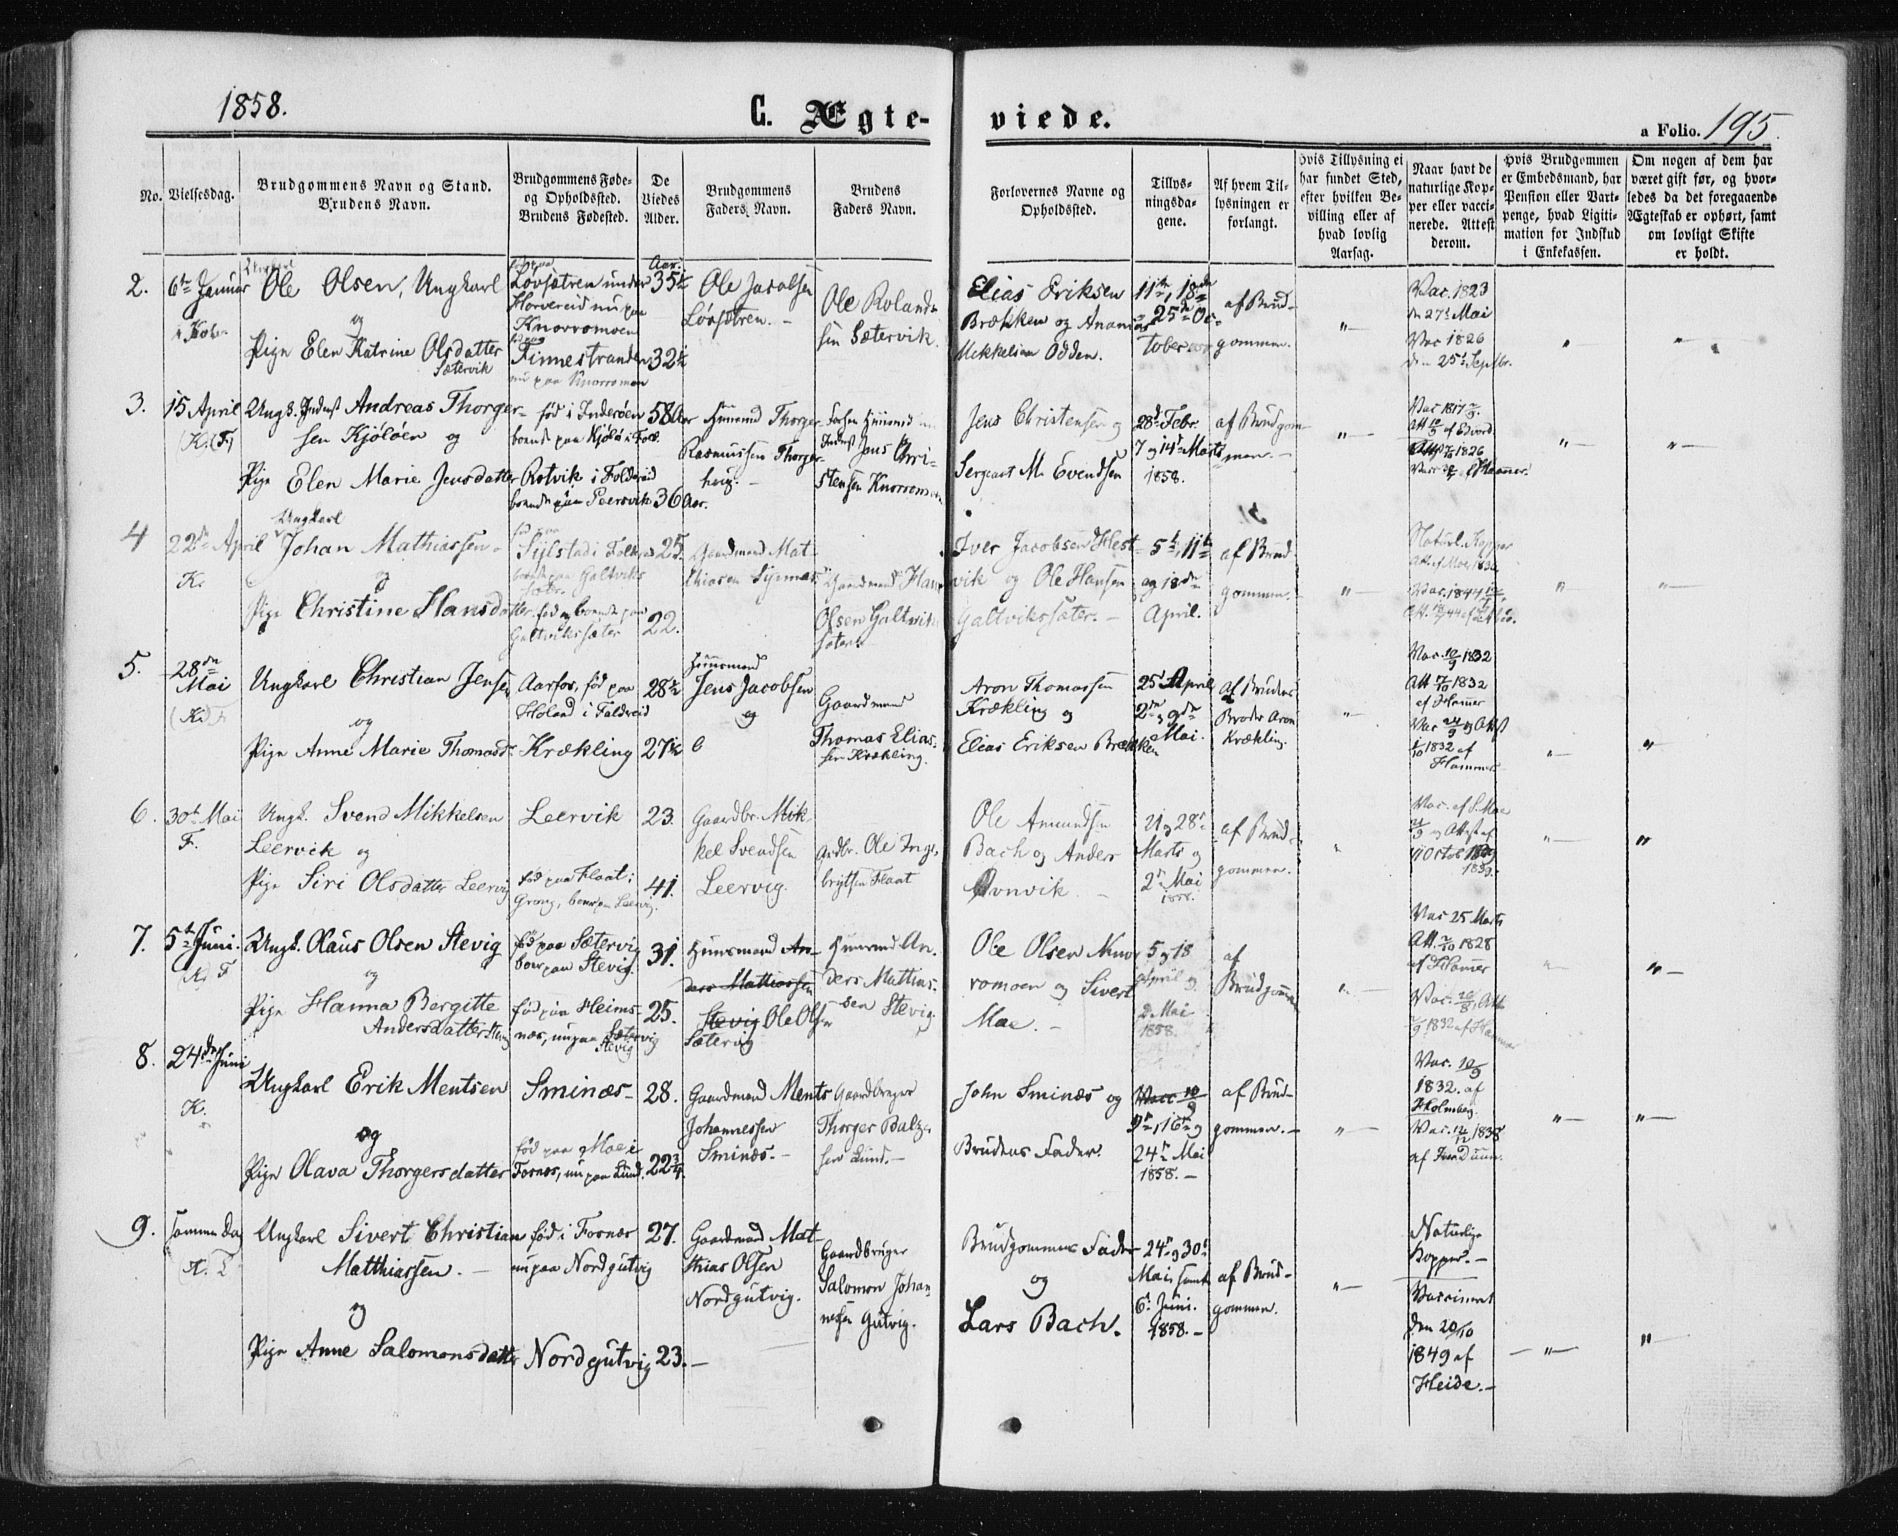 1858.
C. Ægte-
viede.
a Folio. 195.
No.
Vielsesdag.
Brudgommens Navn og Stand.
Brudens Navn.
Brudgommens Føde-
og Opholdssted.
Brudens Fødested.
De
Viedes
Alder.
Brudgommens
Faders Navn.
Brudens
Faders Navn.
Forlovernes Navne og
Opholdssted.
Tillys-
ningsda-
gene.
Af hvem Til-
lysningen er
forlangt.
Hvis Tillysning ei
har fundet Sted,
efter hvilken Be-
villing eller af
hvad lovlig
Aarsag.
Naar havt de
naturlige Kop-
per eller vacci-
nerede. Attest
derom.
Hvis Brudgommen
er Embedsmand, har
Pension eller Vart-
penge, hvad Ligiti-
mation for Indskud
i Enkekassen.
Om nogen af dem har
været gift før, og hvor-
ledes da det foregaaende
Ægteskab er ophørt, samt
om lovligt Skifte
er holdt.
2.
6te Januar
Ole Olsen, Ungkarl
og
Pige Elen Katrine Olsdatter
Sætervik
Løvsætren under
Horvereid nu paa
Knorromoen
Finnestranden
nu paa Knorromoen
Aar.
35½
32½
Ole Jacobsen
Løvsætren.
Ole Roland-
sen Sætervik.
Elias Eriksen
Brækken og Anamias
Mikkelsen Odden.
11te, 18de
25de Oc-
tober
af Brud-
gommen.
"
Vac. 1823
den 27de Mai
Vac 1826
den 25de Septbr.
"
"
3.
15 April
(K. F.)
Ungk. Inderst Andreas Thorger-
sen Kjøløen og
Pige Elen Marie Jensdatter
fød i Inderøen
boende paa Kjølø i Fold.
Rotvik i Foldereid
boende paa Peersvik
58 Aar
36 Aar.
Huusmand Thorger
Rasmussen Thorger-
haug.
Inderst Jens Chri-
stensen Knorremoen
Jens Christensen og
Sergeant M. Evendsen
28de Febr.
7 og 14de Marts
1858.
af Brudgom-
men.
"
Vac 1817
1826
"
"
4
22de April
K.
Ungkarl
Johan Mathiassen
og
Pige Christine Hansdatter
boende paa Galtviks
fød og boende paa
Galtvikssæter
25.
22.
Gaardmand Mat-
thias
Gaardmand Hans
Olsen Galtvik-
sæter
Iver Jacobsen Hest-
vik og Ole Hansen
Galtvikssæter.
5te, 11te
og 18de
April.
af Brud-
gommen.
"
Naturl. Kopper
Vac. 1844
"
"
5.
28de
Mai
(K.) F
Ungkarl Christian Jensen
og
Pige Anne Marie Thomasd.
Aarfos, fød paa
Holand i Foldreid
Krækling
28½
27½
Huusmand
Jens Jacobsen
Gaardmand
Thomas Elias-
sen Krækling.
Aron Thomassen
Krækling og
Elias Eriksen Brækken
25de April
2den, 9de
Mai.
af Brudens
Broder Aron
Krækling.
"
Vac. 10/9 1832
Att 7/10 1832
af Hamer
Vac 24/9 og Attst
1/10 1832 af
Hammer
"
"
6.
30te Mai
F.
Ungk. Svend Mikkelsen
Leervik og
Pige Siri Olsdatter Leervig
Leervik
fød paa Flaat i
Grong, boende paa Leervig.
23.
41.
Gaardbr. Mik-
kel Svendsen
Leervig.
Ole Inge-
brigtsen Flaat
Ole Amundsen
Bach og Anders
Qvonvik.
21 og 28de
Marts og
2den Mai
1858.
af Brud-
gommen.
"
Vac. af S. Moe
og Attest af
1839.
"
"
7.
5te Juni.
K. F
Ungk. Olaus Olsen Stevig
og
Pige Hanna Bergitte
Andersdatter Stevig
fød paa Sætervig
boer paa Stevig.
fød paa Heims-
næs, nu paa Sætervig
Stevig
31.
25.
Huusmand An-
ders Mathiassen
Stevig Ole Olsen
Sætervig
Huusmand An-
ders Mathias-
sen Stevig
Ole Olsen Knor-
romoen og Sivert
Moe.
5 og 18
April og
2. Mai
1858.
af
Brudgommen
"
Vac 25 Marts
Att. 2/10 1828
af Hamer
Vac. 20/8, Att.
1832 af Hammer
"
"
8.
24de Juni
K.
Ungkarl Erik Mentsen
og
Pige Olava Thorgersdatter
Sminæs
fød paa Moe i
Fornæs, nu paa Lund.
28.
22¾.
Gaardmand Ments
Johannessen
Sminæs.
Gaardbruger
Thorger Balza-
sen Lund.
John Sminæs og
Brudens Fader.
Vacc 10/9
9de, 16de og
24de Mai
1858.
af Brud-
gommen.
"
Vac. 10/9
1832. af
Holmberg.
Vac. 12/12 1838
af Iver Duun.
"
"
9.
samme Dag
K. F
Ungkarl Sivert Christian
Matthiassen.
og
Pige Anne Salomonsdatter
fød i Fornæs
nu paa Nordgutvig
Nordgutvig
27.
23.
Gaardmand Mat-
thias Olsen
Nordgutvig.
Gaardbruger
Salomon Johan-
nesen Gutvig.
Brudgommens Fader
og
Lars Bach.
24de og 30te
Mai, samt
6te Juni.
1858.
af Brud-
gommen.
"
Naturlige
Kopper.
Vaccineret
den 20/10
1849 af
Heide.
"
"